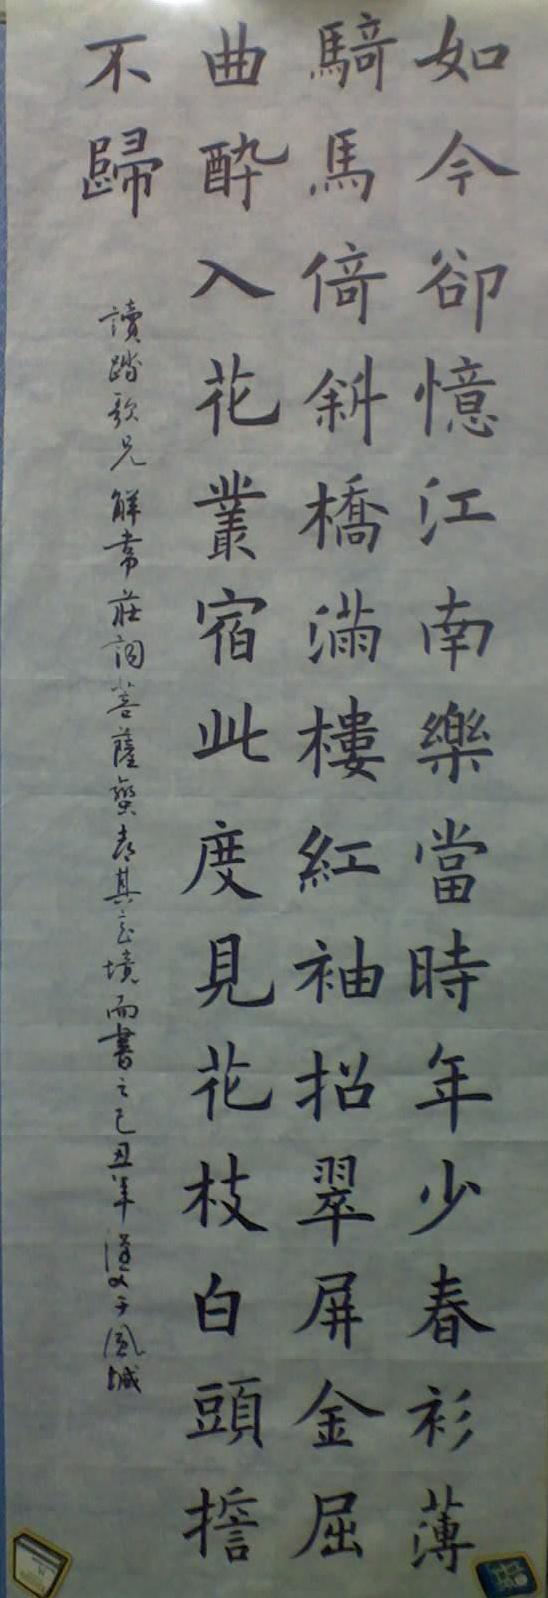 如今卻憶江南樂當時年少春衫薄
騎馬倚斜橋滿樓紅袖招翠屏金屈
曲醉入花叢宿此度見花枝白頭擔
不歸
讀踏歌兄解韋莊詞菩薩蠻喜其意境而書之己丑年漢父于鳳城